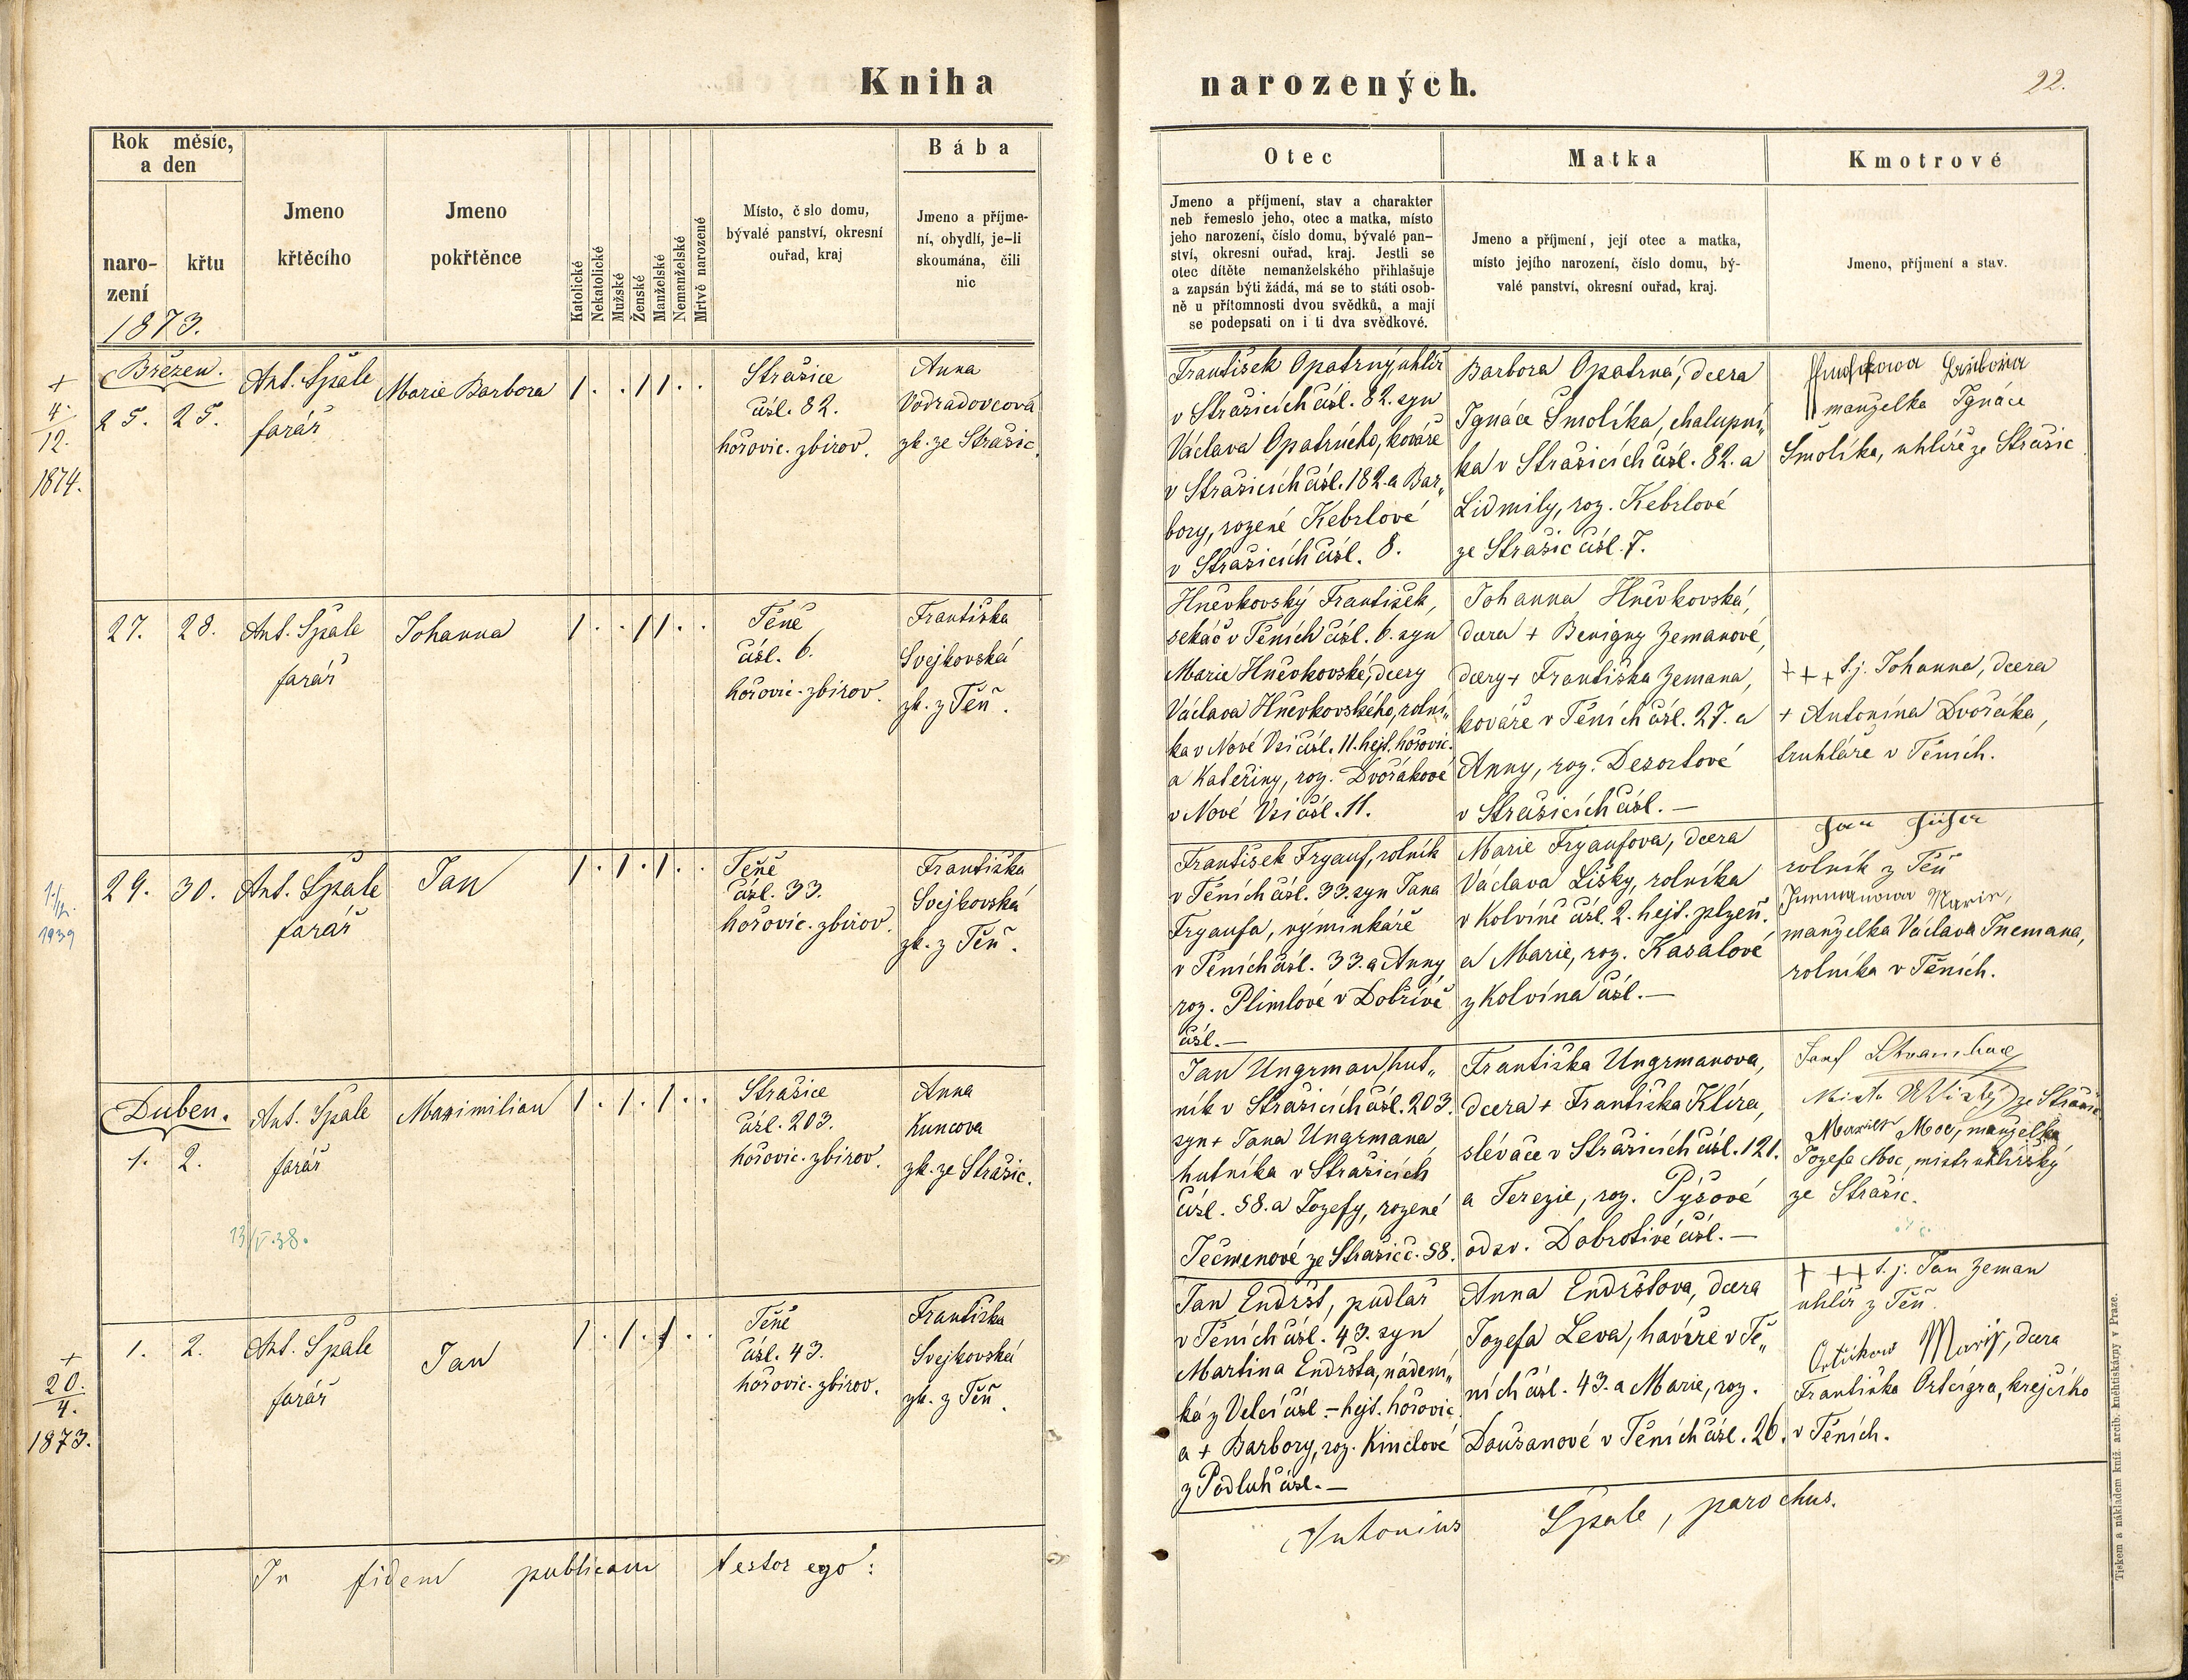 Kniha
narozených.
22.
Rok měsíc,
a den
naro-
zení
křtu
1873.
Jmeno
křtěcího
Jmeno
pokřtěnce
Katolické
Nekatolické
Mužské
Ženské
Manželské
Nemanželské
Mrtvě narozené
Místo, č slo domu,
bývalé panství, okresní
ouřad, kraj
Bába
Jmeno a příjme-
ní, obydlí, je-li
skoumána, čili
nic
Otec
Jmeno a příjmení, stav a charakter
neb řemeslo jeho, otec a matka, místo
jeho narození, číslo domu, bývalé pan-
ství, okresní ouřad, kraj. Jestli se
otec dítěte nemanželského přihlašuje
a zapsán býti žádá, má se to státi osob-
ně u přítomnosti dvou svědků, a mají
se podepsati on i ti dva svědkové.
Matka
Jmeno a příjmení, její otec a matka,
místo jejího narození, číslo domu, bý-
valé panství, okresní ouřad, kraj.
Kmotrové
Jmeno, příjmení a stav.
+
4.
12.
1874.
Březen.
25. 25.
Ant. Špale
farář
Marie Barbora
1 . . 1 1 . .
Strašice
čísl. 82.
hořovic. zbirov.
Anna
Vodradovcová
zk. ze Strašic.
František Opatrný uhlíř
v Strašicích čísl. 82. syn
Václava Opatrného, kováře
v Strašicích čísl. 182. a Bar„
bory, rozené Kebrlové
v Strašicích čísl. 8.
Barbora Opatrná, dcera
Ignáce Smolíka, chalupní„
ka v Strašicích čísl. 82. a
Lidmily, roz. Kebrlové
ze Strašic čísl. 7.
manželka Ignáce
Smolíka, uhlíře ze Strašic
27. 28.
Ant. Špale
farář
Johanna
1 . . 1 1 . .
Těně
čísl. 6.
hořovic. zbirov.
Františka
Svejkovská
zk. z Těň.
Hněvkovský František,
sekáč v Těních čísl. 6. syn
Marie Hněvkovské, dcery
Václava Hněvkovského, rolní„
ka v Nové Vsi čísl. 11. hejt. hořovic.
a Kateřiny, roz. Dvořákové
v Nové Vsi čísl. 11.
Johanna Hněvkovská,
dcera + Benigny Zemanové,
dcery + Františka Zemana,
kováře v Těních čísl. 27. a
Anny, roz. Dezortové
v Strašicích čísl. —
+ + + t.j. Johanna, dcera
+ Antonína Dvořáka,
truhláře v Těních.
1939
29. 30.
Ant. Špale
farář
Jan
1 . 1 . 1 . .
Těně
čísl. 33.
hořovic. zbirov.
Františka
Svejkovská
zk. z Těň.
František Frgauf, rolník
v Těních čísl. 33. syn Jana
Frgaufa, výminkáře
v Těních čísl. 33. a Anny
roz. Plimlové v Dobřívě
čísl. —
Marie Frgaufova, dcera
Václava Lišky, rolníka
v Kolvíně čísl. 2. hejt. plzeň.
a Marie, roz. Kasalové
z Kolvína čísl. —
rolník z Těň
manželka Václava Inemana,
rolníka v Těních.
Duben.
1. 2.
13/V.38.
Ant. Špale
farář
Maximilian
1 . 1 . 1 . .
Strašice
čísl. 203.
hořovic. zbirov.
Anna
Kuncova
zk. ze Strašic.
Jan Ungrman, hut„
ník v Strašicích čísl. 203.
syn + Jana Ungrmana
hutníka v Strašicích
čísl. 58. a Jozefy, rozené
Ječmenové ze Strašic č. 58.
Františka Ungrmanova,
dcera + Františka Klíra,
slévače v Strašicích čísl. 121.
a Terezie, roz. Pýšové
od sv. Dobrotivé čísl. —
ze Strašic
Moc, manželka
Jozefa Moc, mistr uhlířský
ze Strašic.
+
20.
4.
1873.
1. 2.
Ant. Špale
farář
Jan
1 . 1 . 1 . .
Těně
čísl. 43.
hořovic. zbirov.
Františka
Svejkovská
zk. z Těň.
Jan Endršt, pudlař
v Těních čísl. 43. syn
Martina Endršta, nádení„
ka z Velcí čísl. — hejt. hořovic.
a + Barbory, roz. Kinclové
z Podluh čísl. —
Anna Endrštova, dcera
Jozefa Leva, havíře v Tě„
ních čísl. 43. a Marie, roz.
Doušanové v Těních čísl. 26.
+ + + t.j. Jan Zeman
uhlíř z Těň.
Marie, dcera
Františka Ortcigra, krejčího
v Těních.
In fidem publicam testor ego:
Antonius Špale, parochus.
Tiskem a nákladem kníž. arcib. knihtiskárny v Praze.